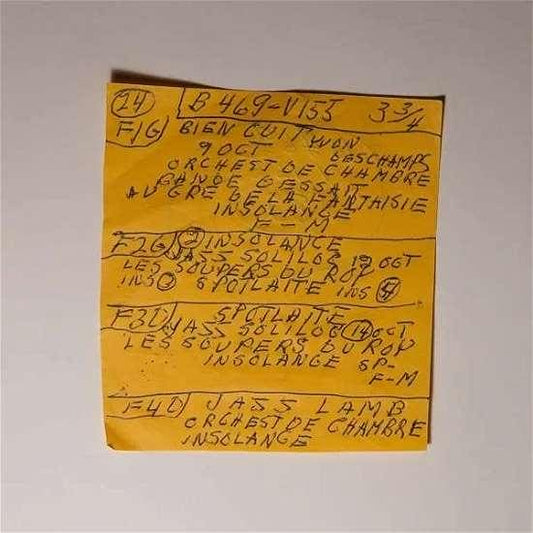 24 B 469-V155 3 3/4
F1G BIEN CUIT YVON
9 OCT DESCHAMPS
ORCHEST DE CHAMBRE
BANDE D ESSAIT
AU GRE DE LA FANTAISIE
INSOLANGE
F-M
F2G 2 INSOLANCE
JASS SOLILOC 12 OCT
LES SOUPERS DU ROY
INS SPOTLAITE INS
F3D SPOTLAITE
JASS SOLILOC 14 OCT
LES SOUPERS DU ROY
INSOLANGE SP-
F-M
F4D JASS LAMB
ORCHEST DE CHAMBRE
INSOLANGE